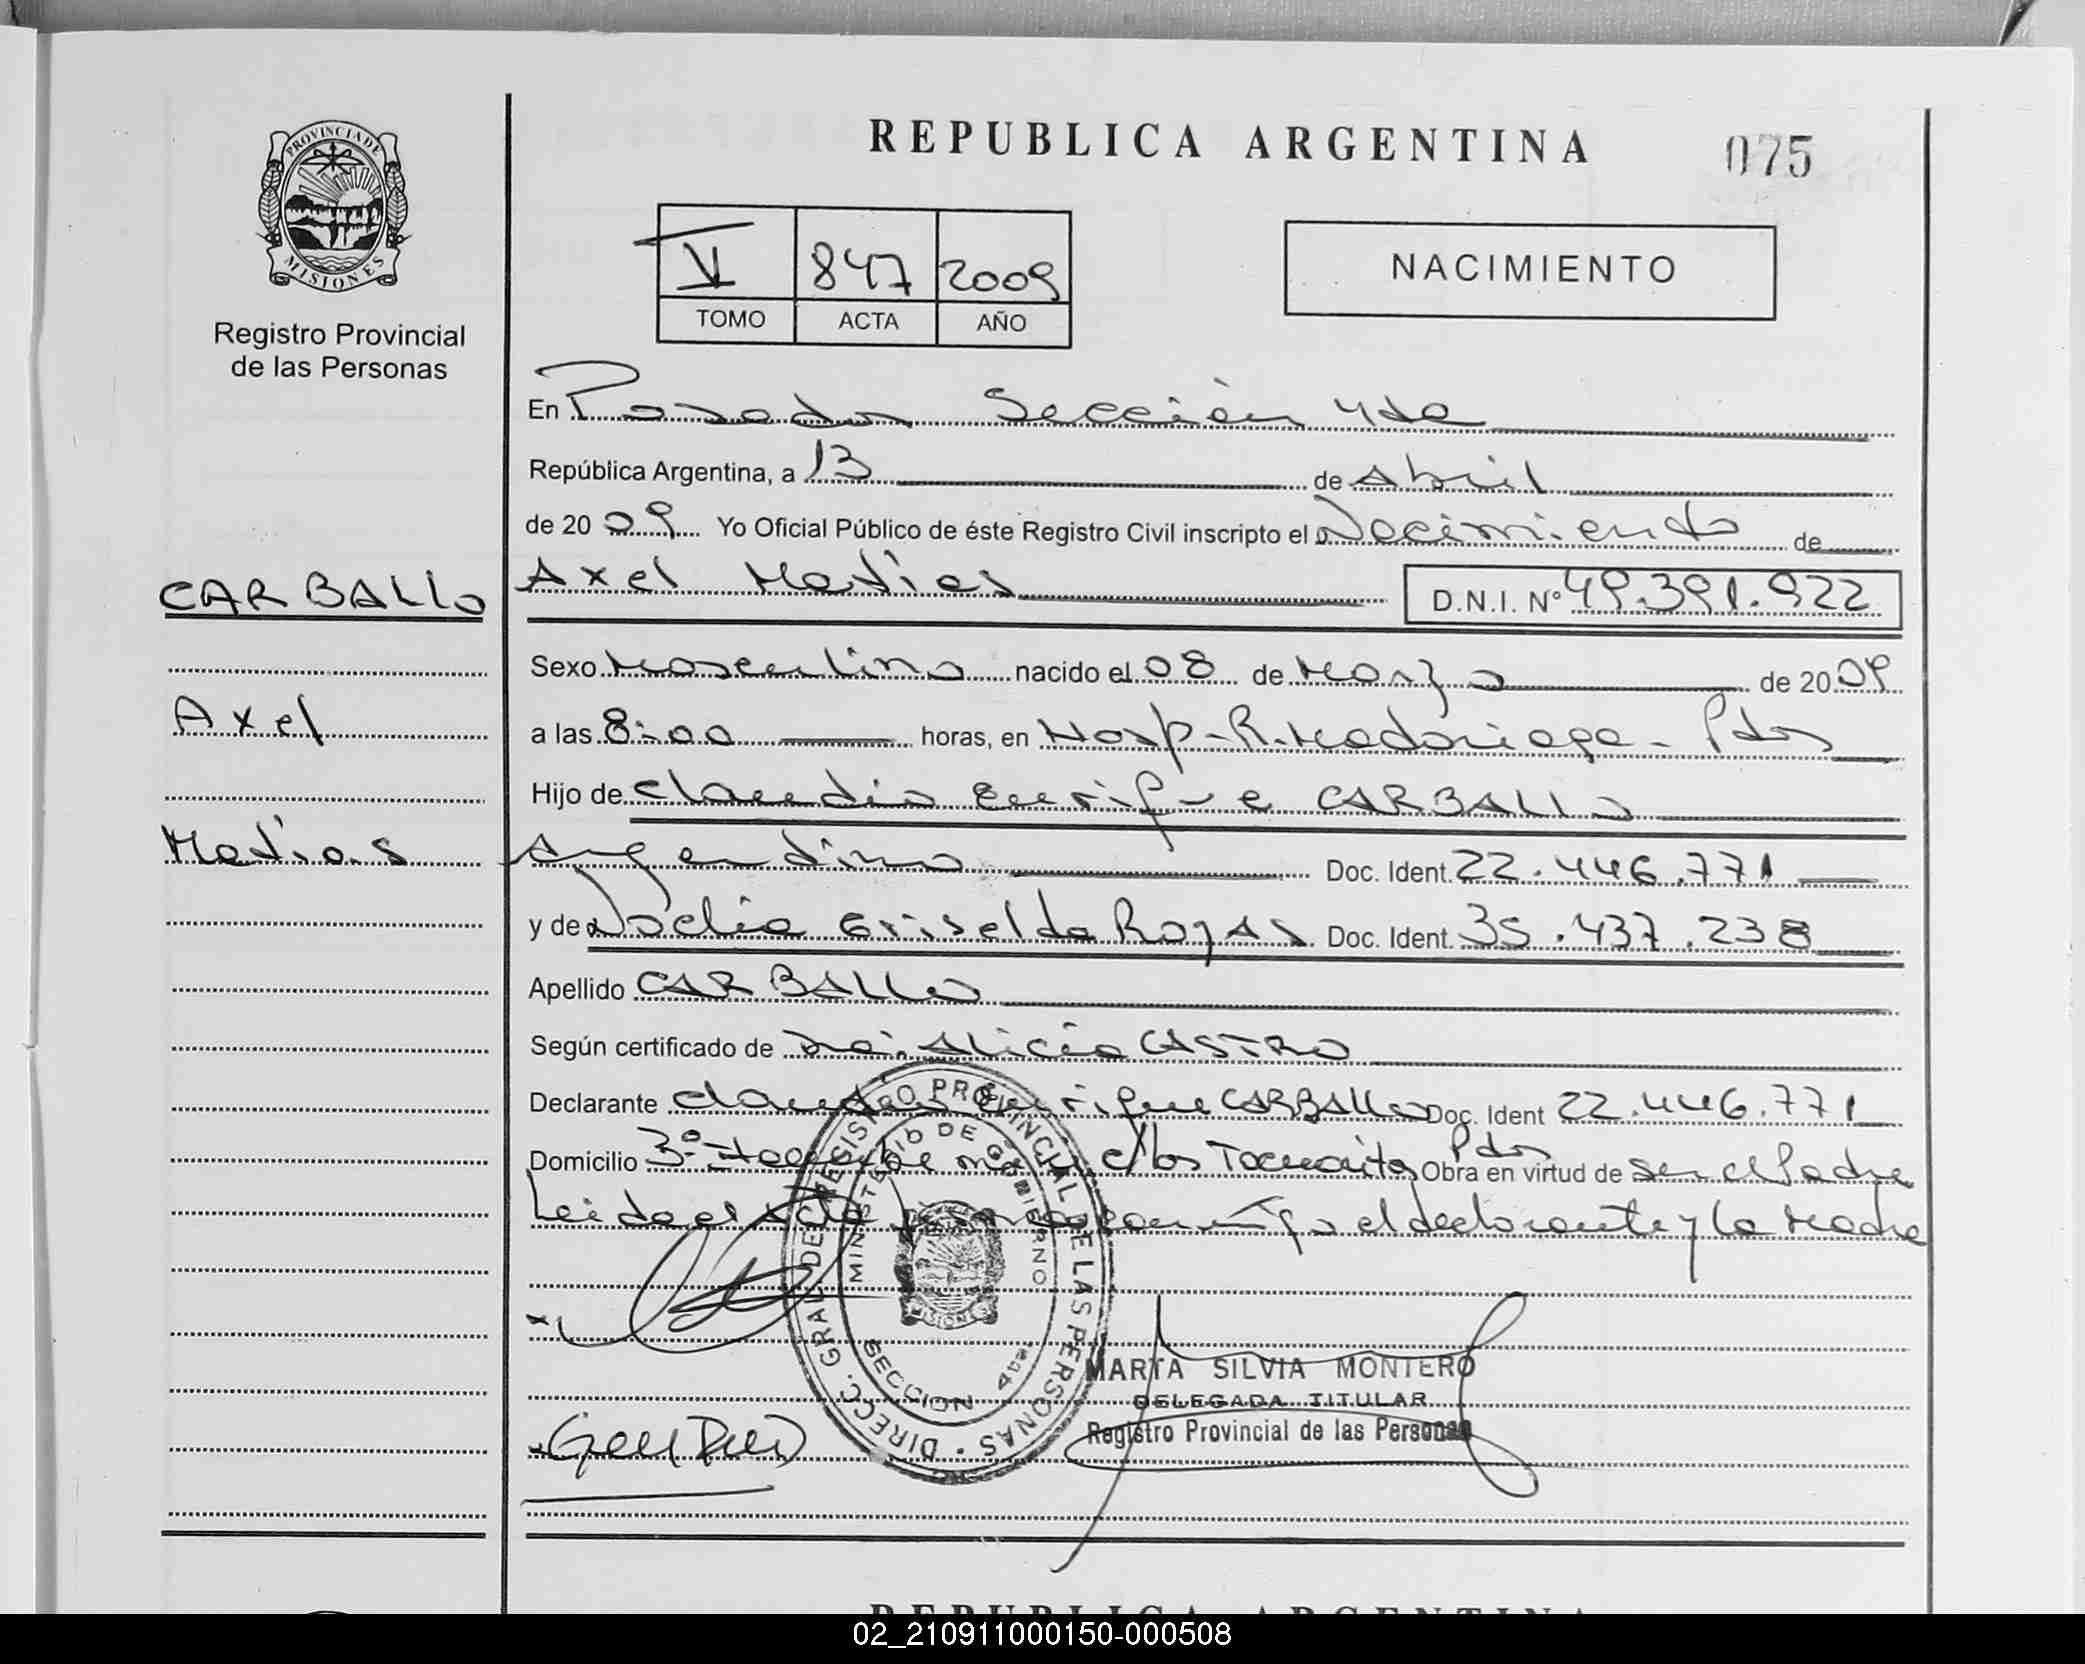 REPUBLICA ARGENTINA
075
PROVINCIA DE
MISIONES
Registro Provincial
de las Personas
V 847 2009
TOMO ACTA AÑO
NACIMIENTO
En Posadas Sección 4da
República Argentina, a 13 de Abril
de 20 09 Yo Oficial Público de éste Registro Civil inscripto el Nacimiento de
CARBALLO
Axel Matias D.N.I. Nº 49.391.922
Sexo Masculino nacido el 08 de Marzo de 20 09
Axel
a las 8:00 horas, en Hosp-R.Madariaga-Pdas
Hijo de Claudio Enrique CARBALLO
Matias
Argentino Doc. Ident. 22.446.771
y de Noelia Griselda ROJAS Doc. Ident. 35.437.238
Apellido CARBALLO
Según certificado de Dra. Alicia CASTRO
Declarante Claudio Enrique CARBALLO Doc. Ident 22.446.771
Domicilio c/los Tacuaritas Pdas Obra en virtud de ser el Padre
Leida el Acta conmigo el declarante y la Madre
DIRECC. GRAL. DEL REGISTRO PROVINCIAL DE LAS PERSONAS
MINISTERIO DE GOBIERNO
MISIONES
SECCION 4da
MARTA SILVIA MONTERO
DELEGADA TITULAR
Registro Provincial de las Personas
REPUBLICA ARGENTINA
02_210911000150-000508